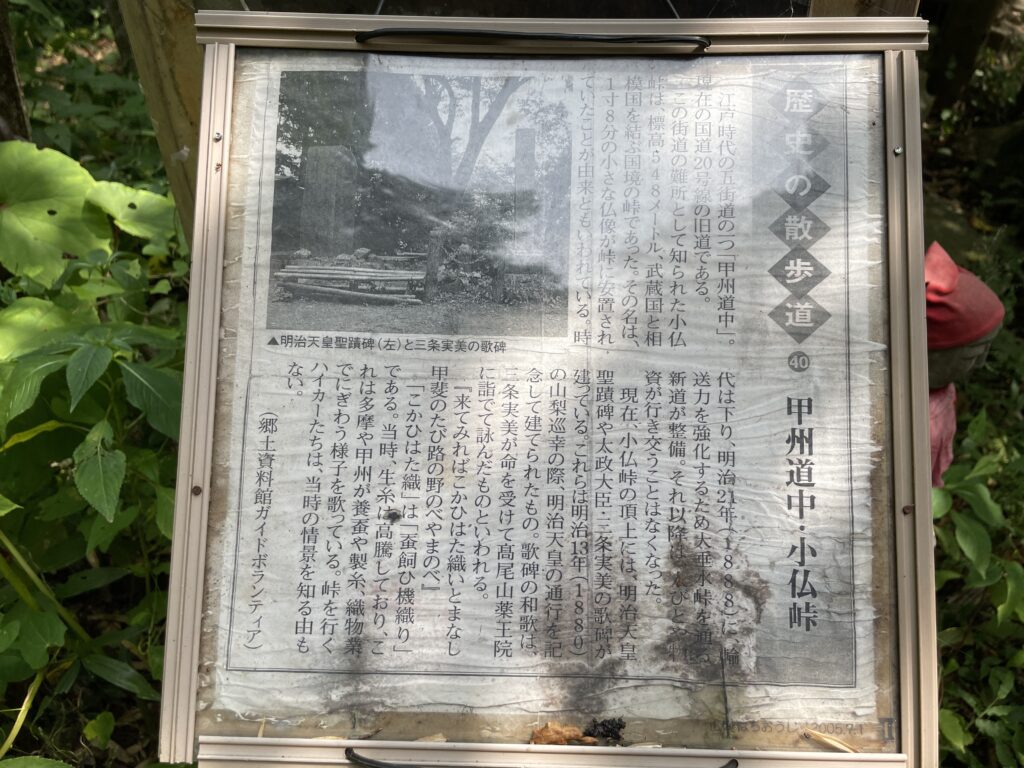 歴史の散歩道 40 甲州道中・小仏峠
江戸時代の五街道の一つ「甲州道中」。
在の国道20号線の旧道である。
この街道の難所として知られた小仏
峠は、標高548メートル、武蔵国と相
模国を結ぶ国境の峠であった。その名は、
1寸8分の小さな仏像が峠に安置され
ていたことが由来ともいわれている。時
代は下り、明治21年(1888)に、輸
送力を強化するため大垂水峠を通る
新道が整備。それ以降は
資が行き交うことはなくなった。
現在、小仏峠の頂上には、明治天皇
聖蹟碑や太政大臣・三条実美の歌碑が
建っている。これらは明治13年(1880)
の山梨巡幸の際、明治天皇の通行を記
念して建てられたもの。歌碑の和歌は、
三条実美が命を受けて高尾山薬王院
に詣でて詠んだものといわれる。
『来てみればこかひはた織いとまなし
甲斐のたび路の野のべやまのべ』
「こかひはた織」は「蚕飼ひ機織り」
である。当時、生糸は高騰しており、こ
れは多摩や甲州が養蚕や製糸、織物業
でにぎわう様子を歌っている。峠を行く
ハイカーたちは、当時の情景を知る由も
ない。
(郷土資料館ガイドボランティア)
▲明治天皇聖蹟碑(左)と三条実美の歌碑
はちおうじ 2005.7.1